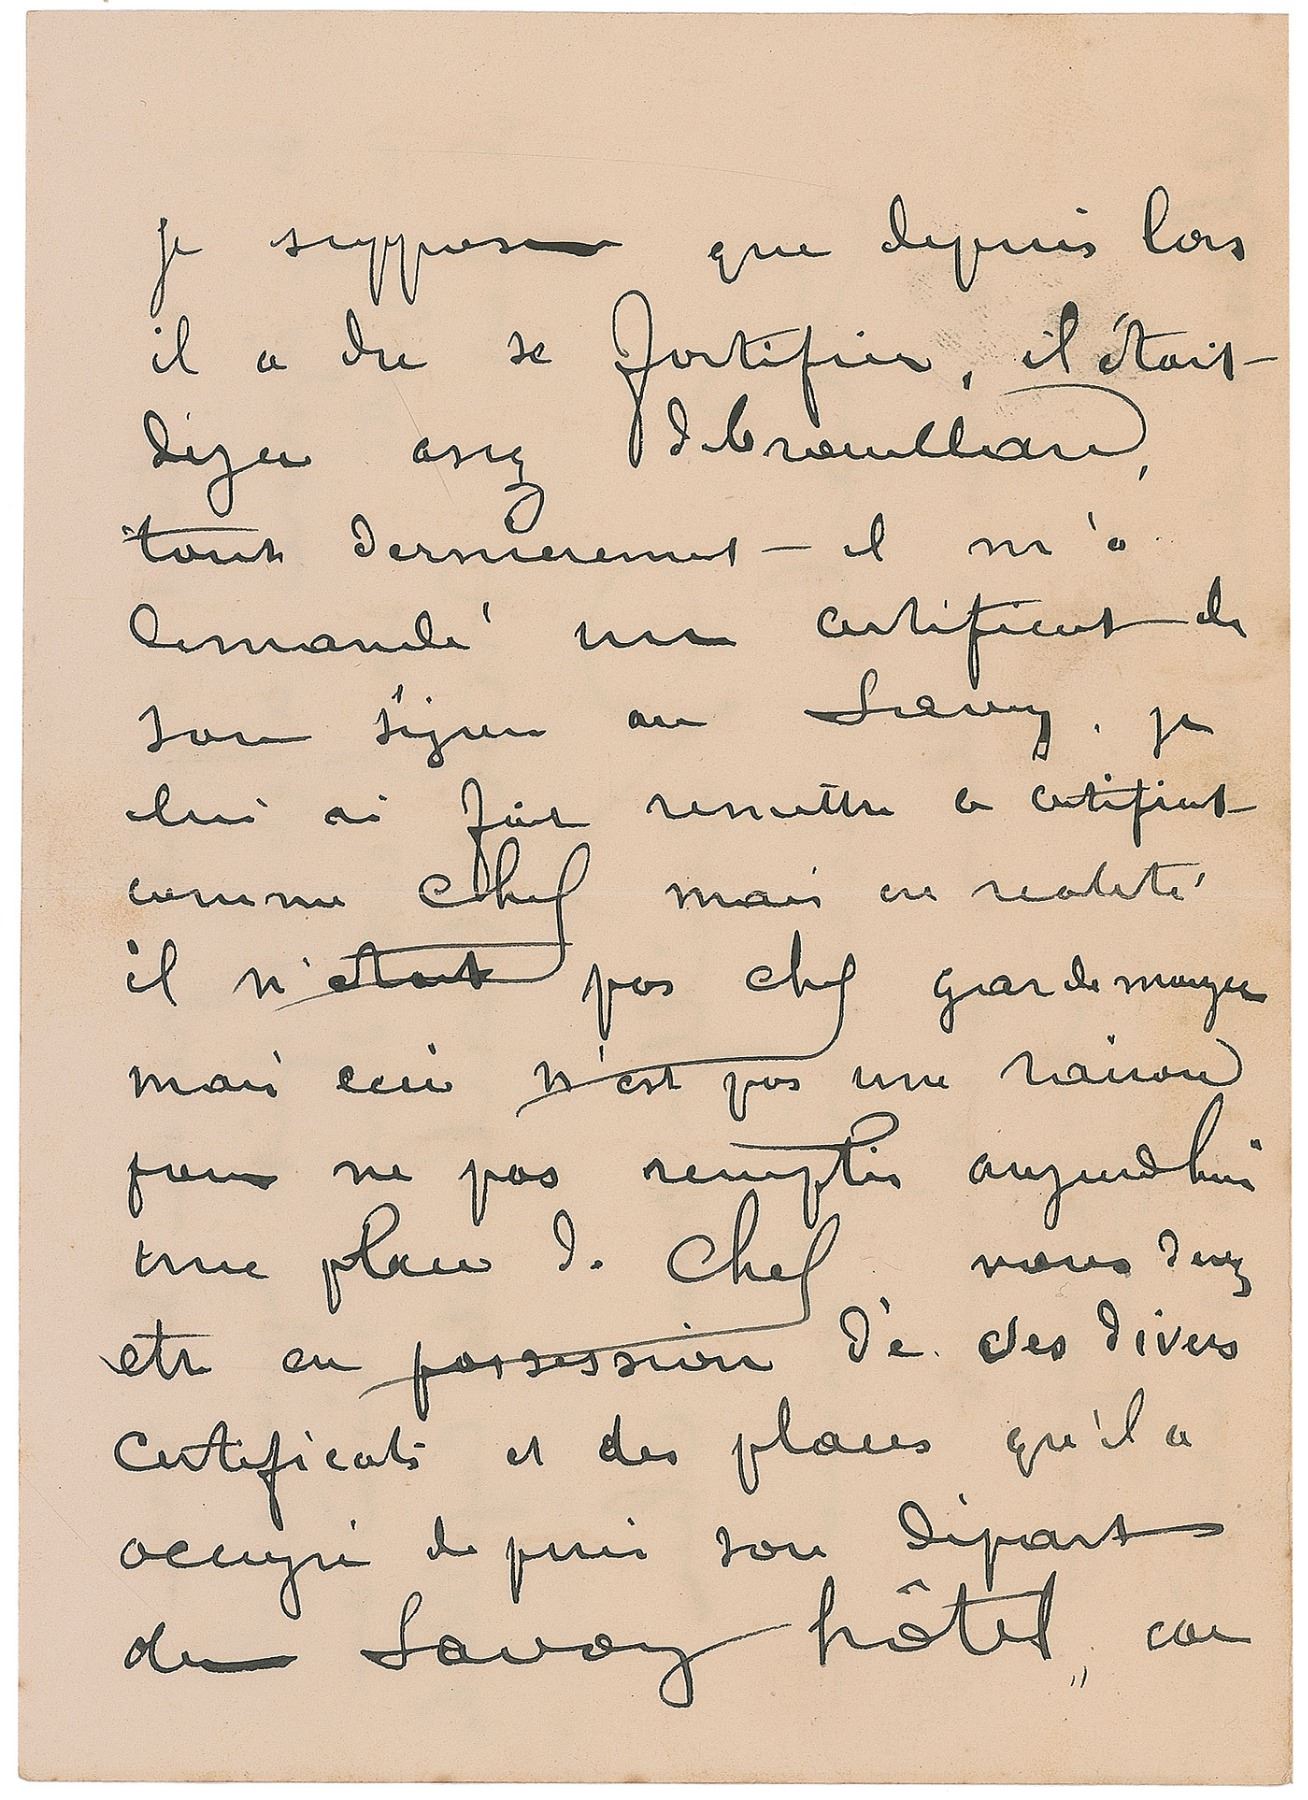 je suppose que depuis lors
il a du se fortifier, il était
dèja assez débrouillard,
tout dernierement il m'a
demandé un certificat de
son séjour au Savoy. je
lui ai fait remettre ce certificat
comme Chef mais en realité
il n'était pas chef garde manger
mais ceci n'est pas une raison
pour ne pas remplir aujourd'hui
une place de Chef. vous devez
etre en possession de ces divers
Certificats et des places qu'il a
occupé depuis son départ
du Savoy hôtel, car